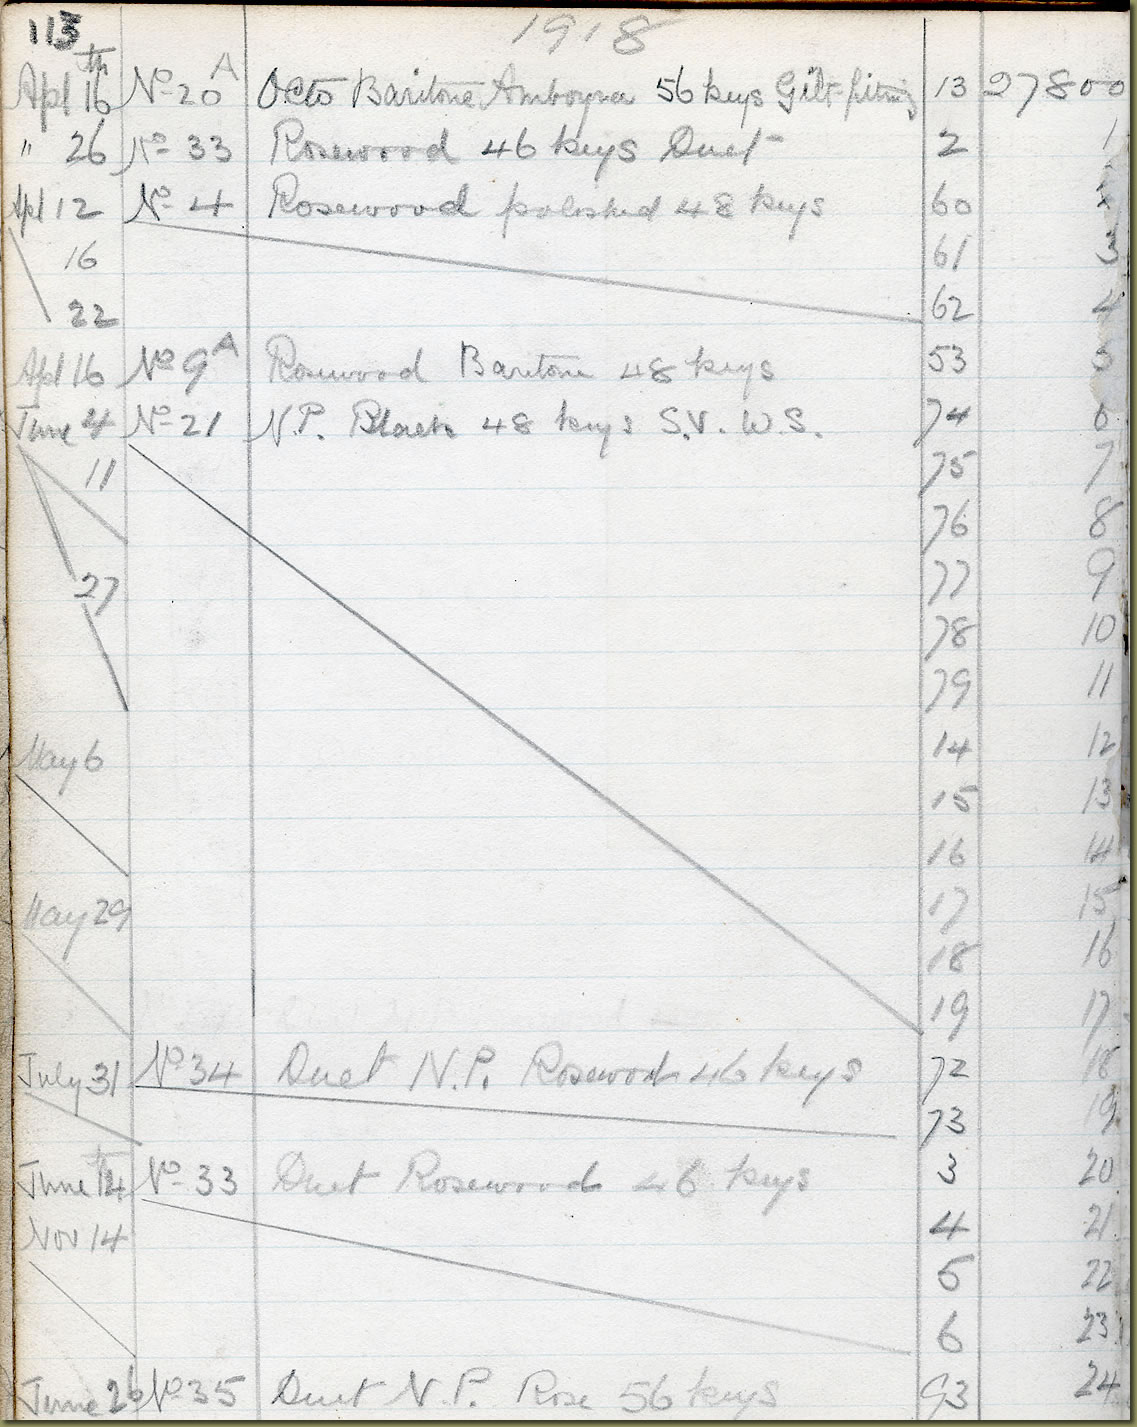 113 1918
Apl 16th No 20 A Octo Baritone Amboyna 56 keys Gilt fitting 13 27800
" 26 No 33 Rosewood 46 keys Duet 2 1
Apl 12 No 4 Rosewood polished 48 keys 60
16 61 3
22 62 4
Apl 16 No 9 A Rosewood Baritone 48 keys 53 5
June 4 No 21 N.P. Black 48 keys S.V. W.S. 74 6
11 75 7
76 8
27 77 9
78 10
79 11
May 6 14 12
15 13
16 14
May 29 17 15
18 16
19 17
July 31 No 34 Duet N.P. Rosewood 46 keys 72 18
73 19
June 14th No 33 Duet Rosewood 46 keys 3 20
Nov 14 4 21
5 22
6 23
June 26 No 35 Duet N.P. Rose 56 keys 93 24